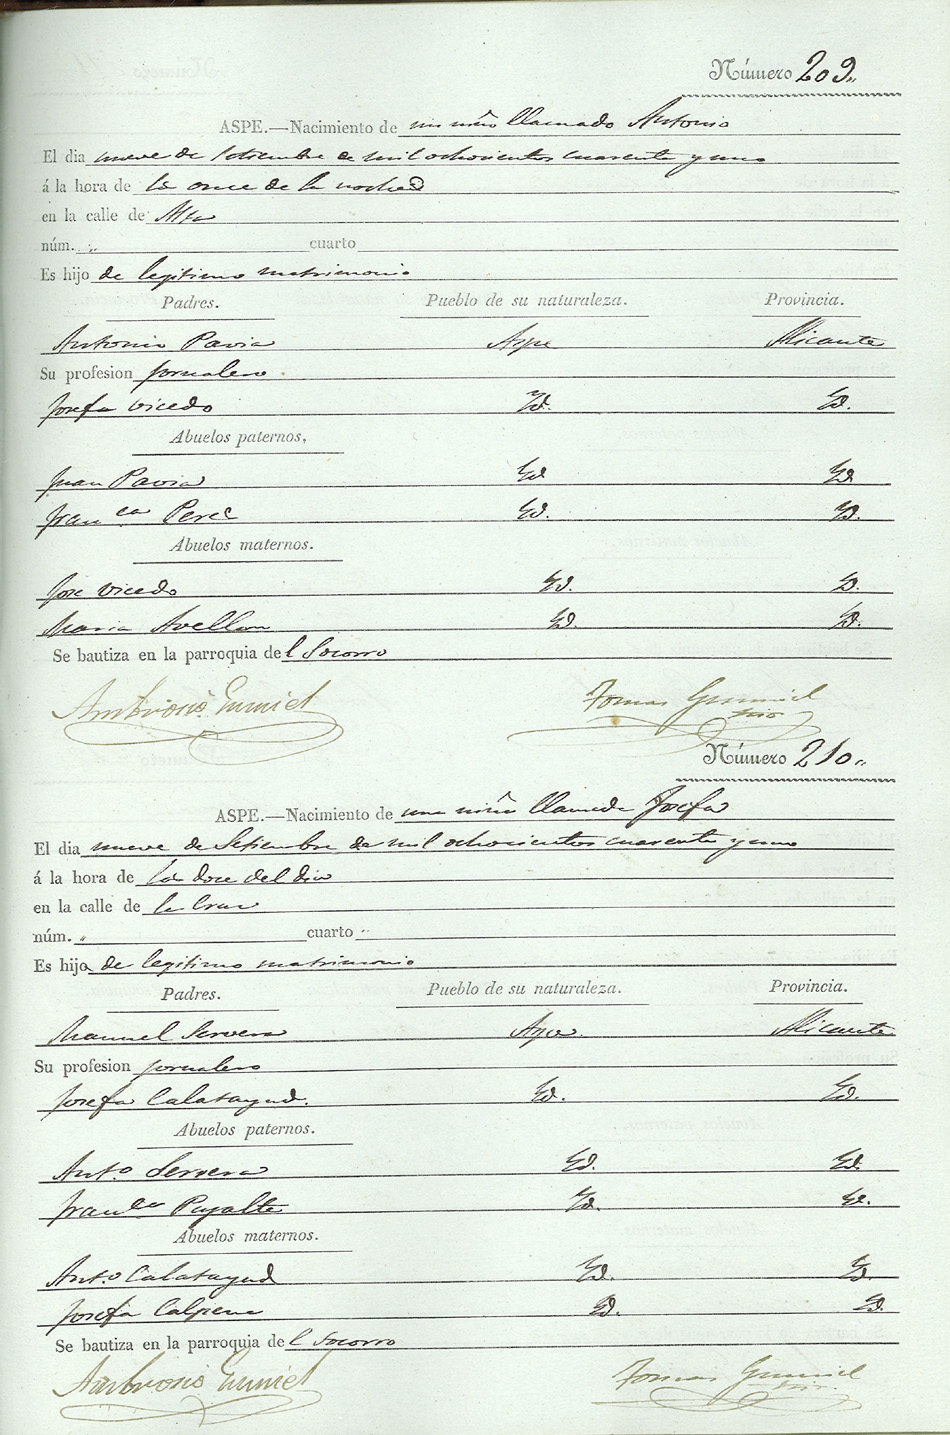 Número 209.
ASPE.—Nacimiento de un niño llamado Antonio
El dia nueve de Setiembre de mil ochocientos cuarenta y uno
á la hora de las once de la noche
en la calle de Alta
núm. „ cuarto
Es hijo de legitimo matrimonio
Padres. Pueblo de su naturaleza. Provincia.
Antonio Pavia Aspe Alicante
Su profesion jornalero.
Josefa Vicedo Yd. Yd.
Abuelos paternos,
Juan Pavia Yd Yd
Fran.ca Perez Yd. Yd.
Abuelos maternos.
Jose Vicedo Yd. Yd.
Maria Avellan Yd. Yd.
Se bautiza en la parroquia del Socorro
Ambrosio Tomas
Número 210.
ASPE.—Nacimiento de una niña llamada Josefa
El dia nueve de Setiembre de mil ochocientos cuarenta y uno
á la hora de las doce del dia
en la calle de la Cruz
núm. „ cuarto „
Es hijo de legitimo matrimonio
Padres. Pueblo de su naturaleza. Provincia.
Manuel Servera Aspe Alicante
Su profesion jornalero
Josefa Calatayud. Yd. Yd.
Abuelos paternos.
Ant.o Servera Yd. Yd.
Fran.ca Puyalte Yd. Yd.
Abuelos maternos.
Ant.o Calatayud Yd. Yd.
Josefa Calpena Yd. Yd.
Se bautiza en la parroquia del Socorro
Ambrosio Tomas